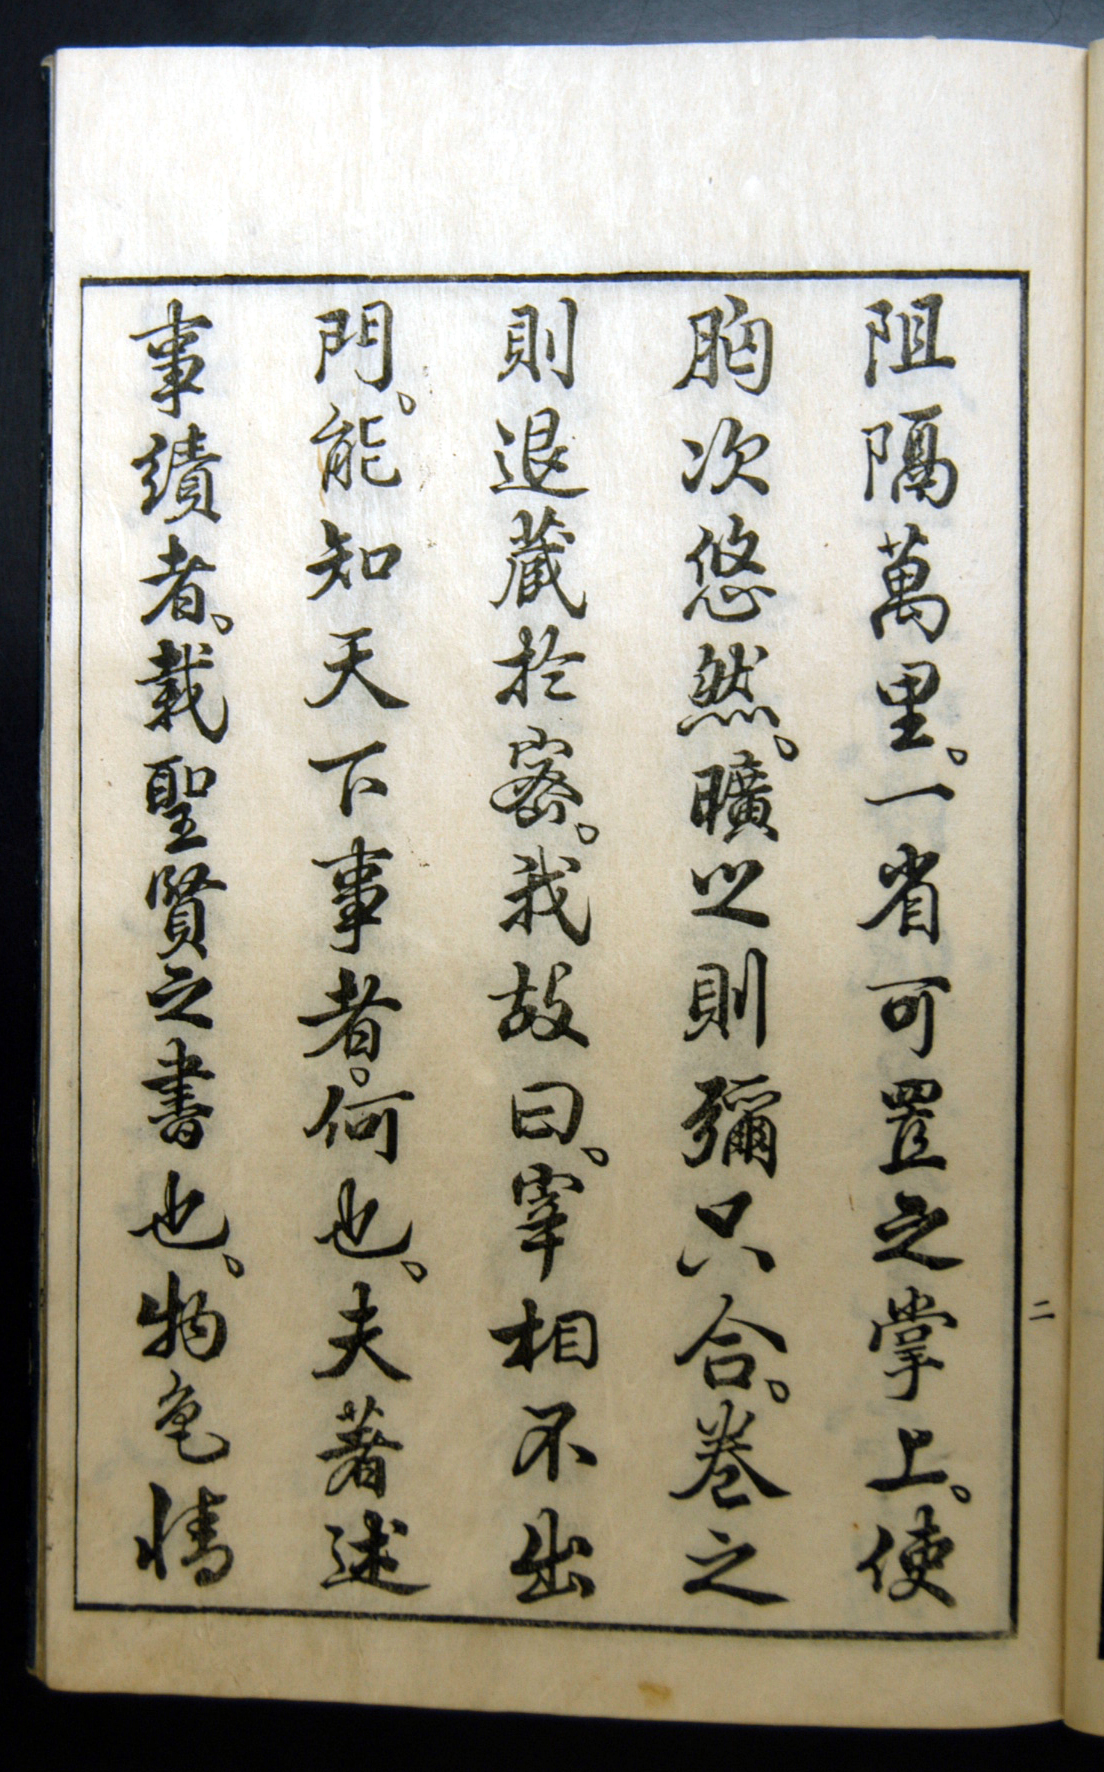 阻隔萬里。一省可置之掌上。使
胸次悠然。曠之則彌只合。卷之
則退藏於密。我故曰。宰相不出
門。能知天下事者。何也。夫著述
事績者。載聖賢之書也。物色情
二